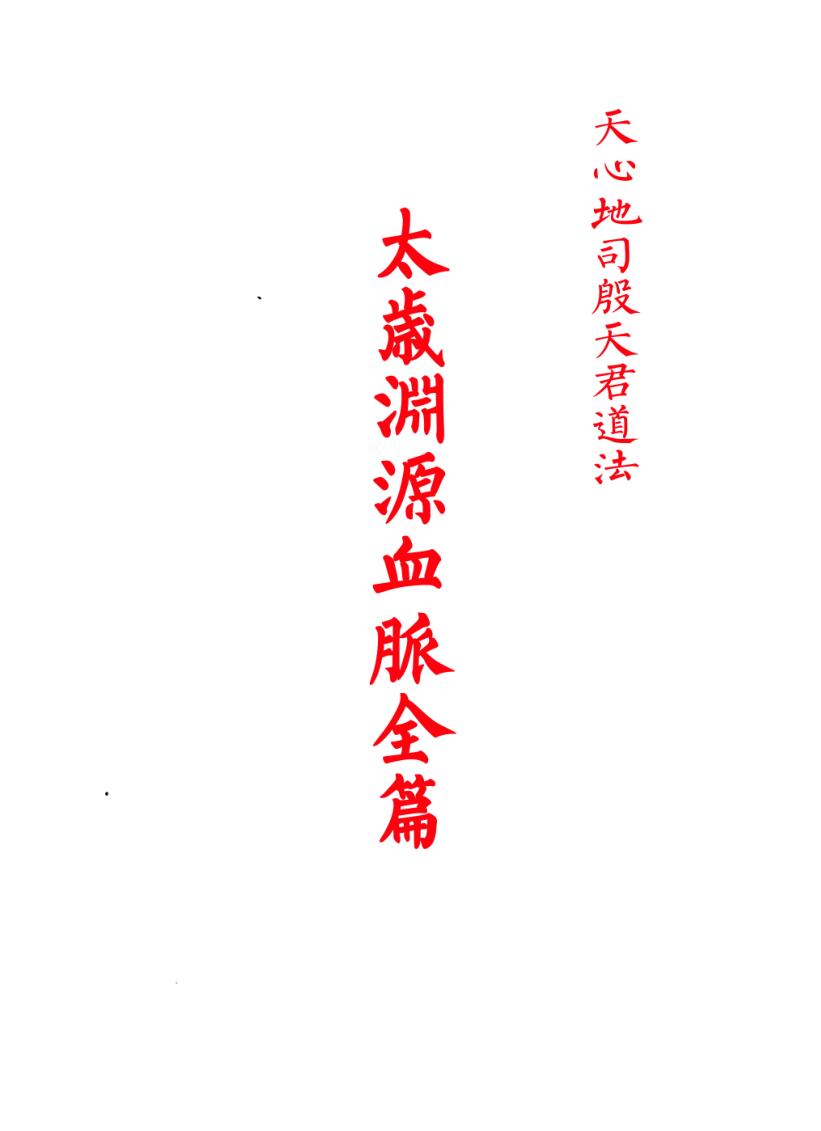 天心地司殷天君道法
太歲淵源血脈全篇